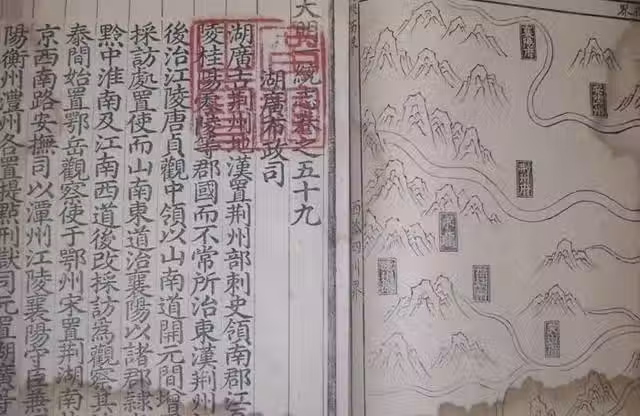 界
襄陽府
荊州府
西至四川界
大明一統志卷之五十九
湖廣布政司
湖廣古荊州地漢置荊州部刺史領南郡江
陵桂陽陵等郡國而不常所治東漢荊州
後治江陵唐貞觀中領以山南道開元間增
採訪處置使而山南東道治襄陽以諸郡隸
黔中淮南及江南西道後改採訪為觀察其
泰間始置鄂岳觀察使于鄂州宋置荊湖南
京西南路安撫司以潭州江陵襄陽守臣兼
陽衡州澧州各置提點刑獄司元置湖廣行